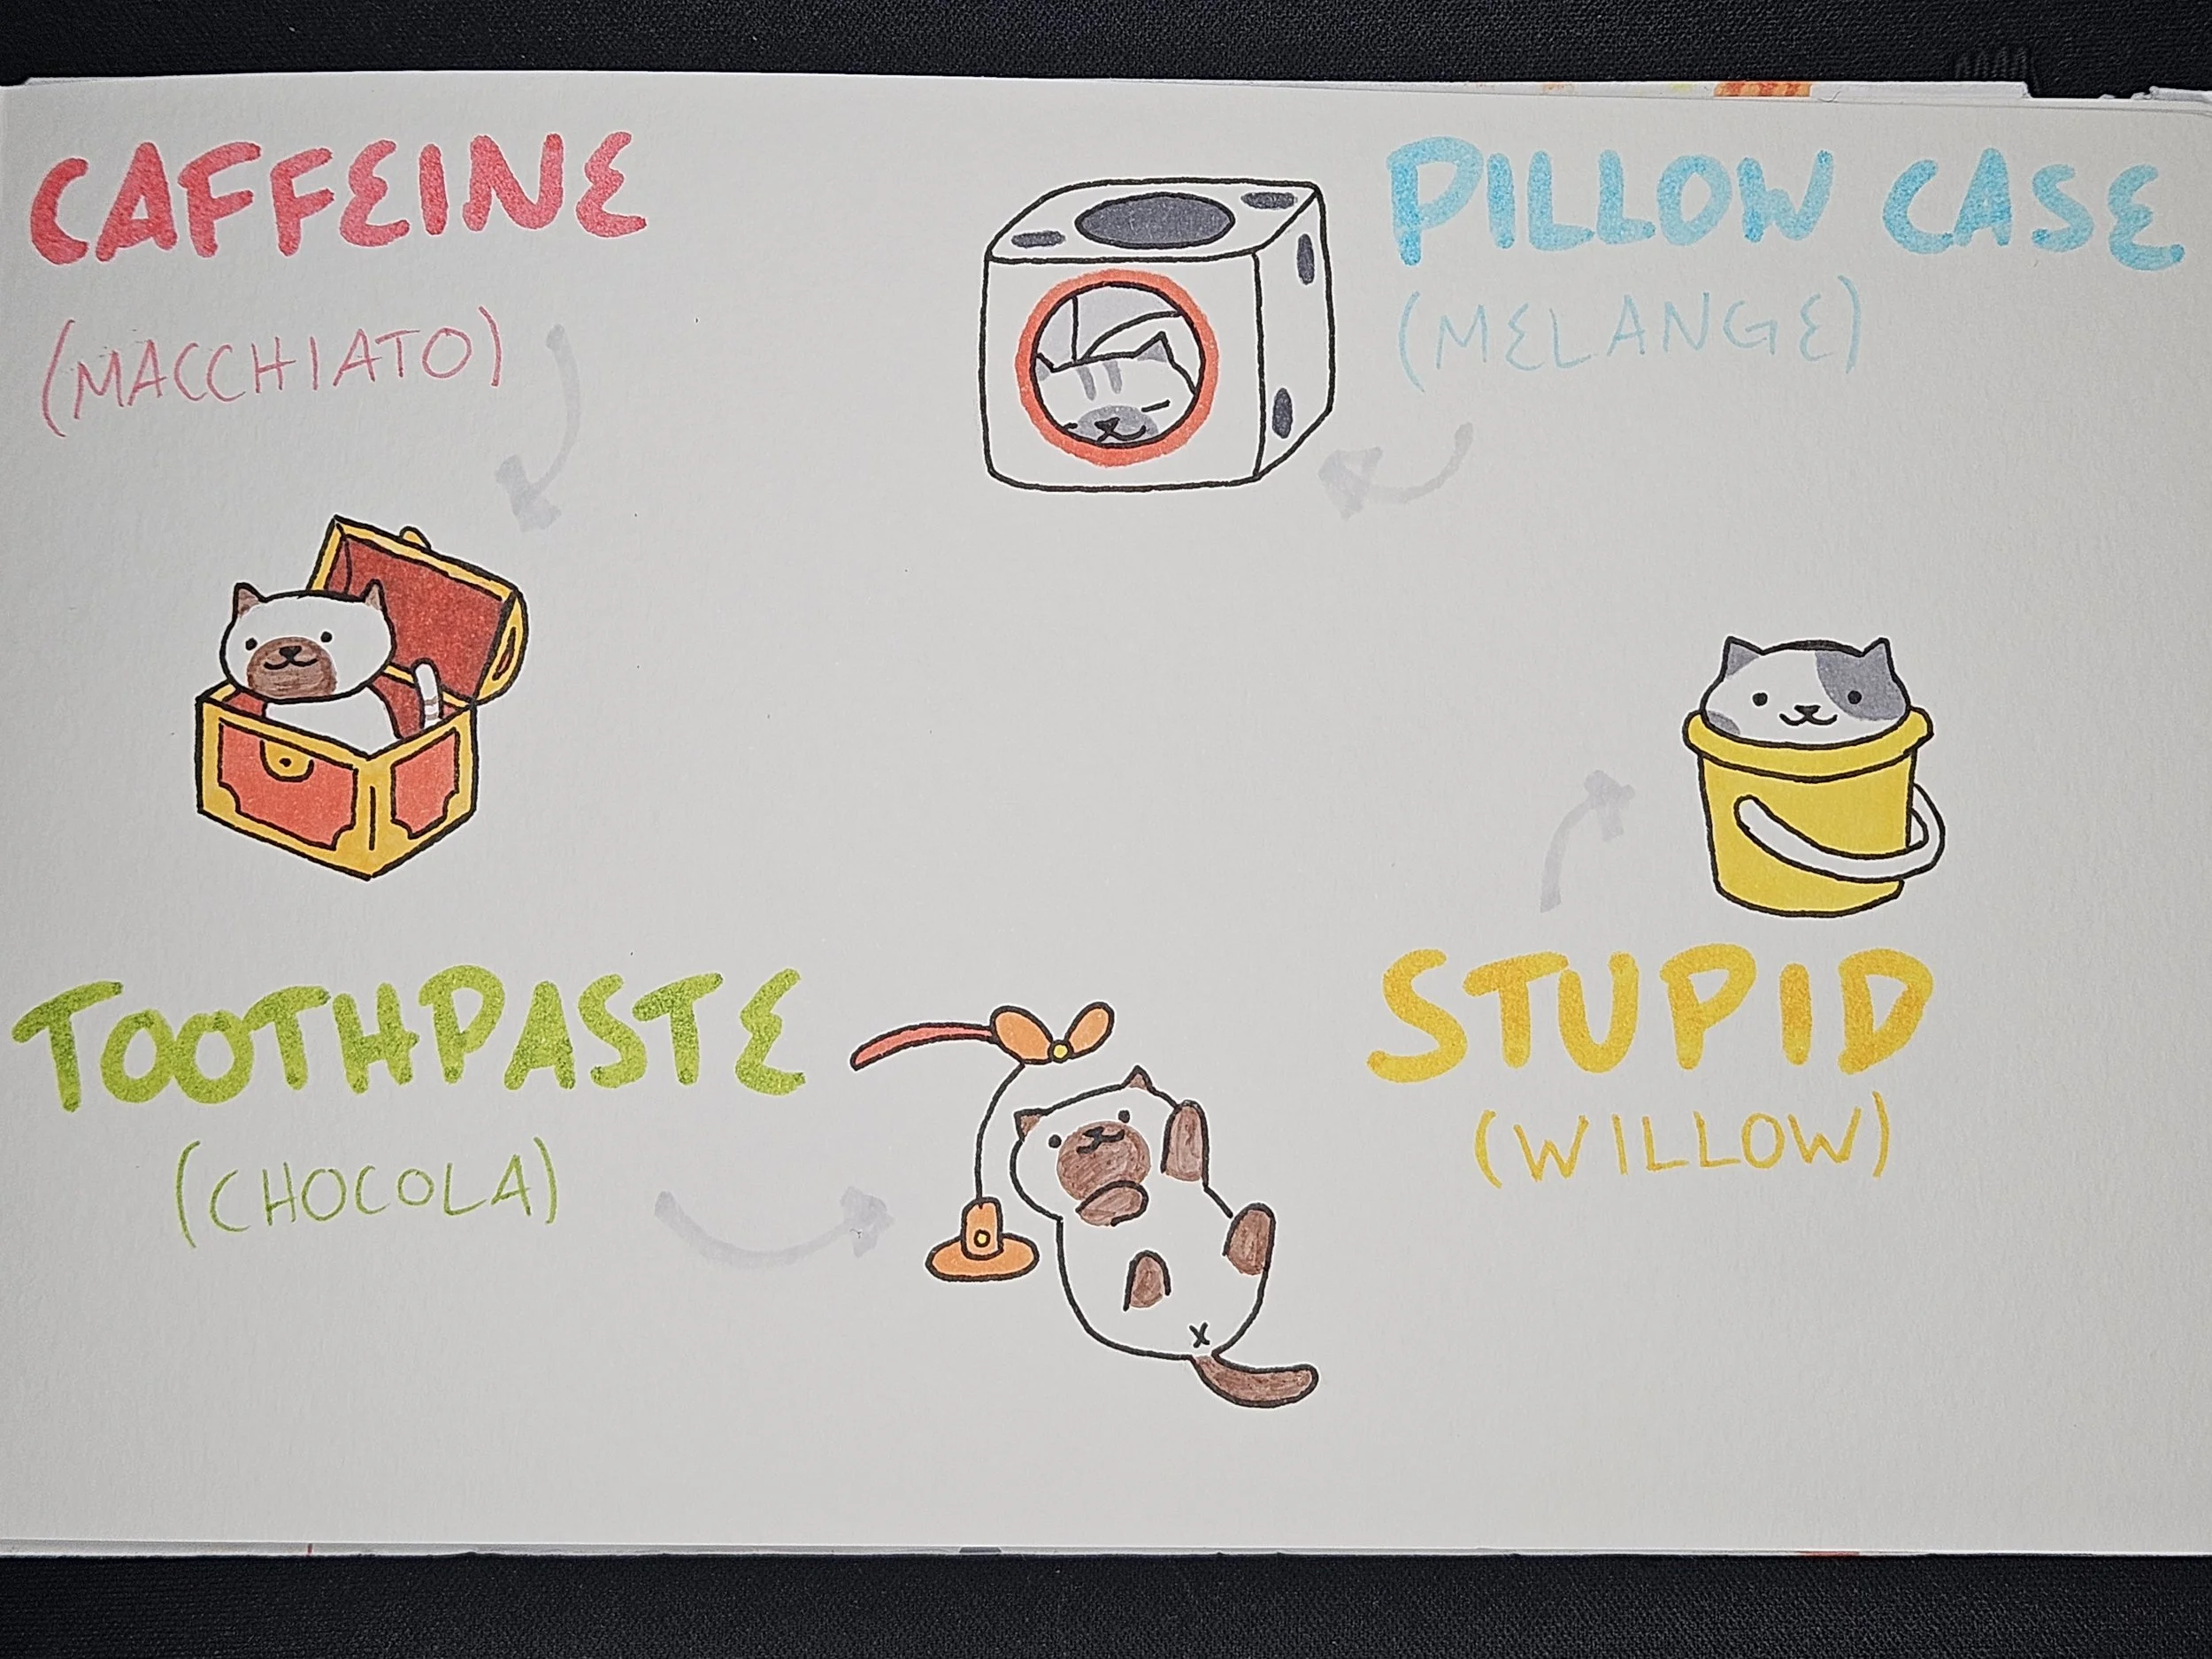 CAFFEINE
(MACCHIATO)
PILLOW CASE
(MELANGE)
TOOTHPASTE
(CHOCOLA)
STUPID
(WILLOW)